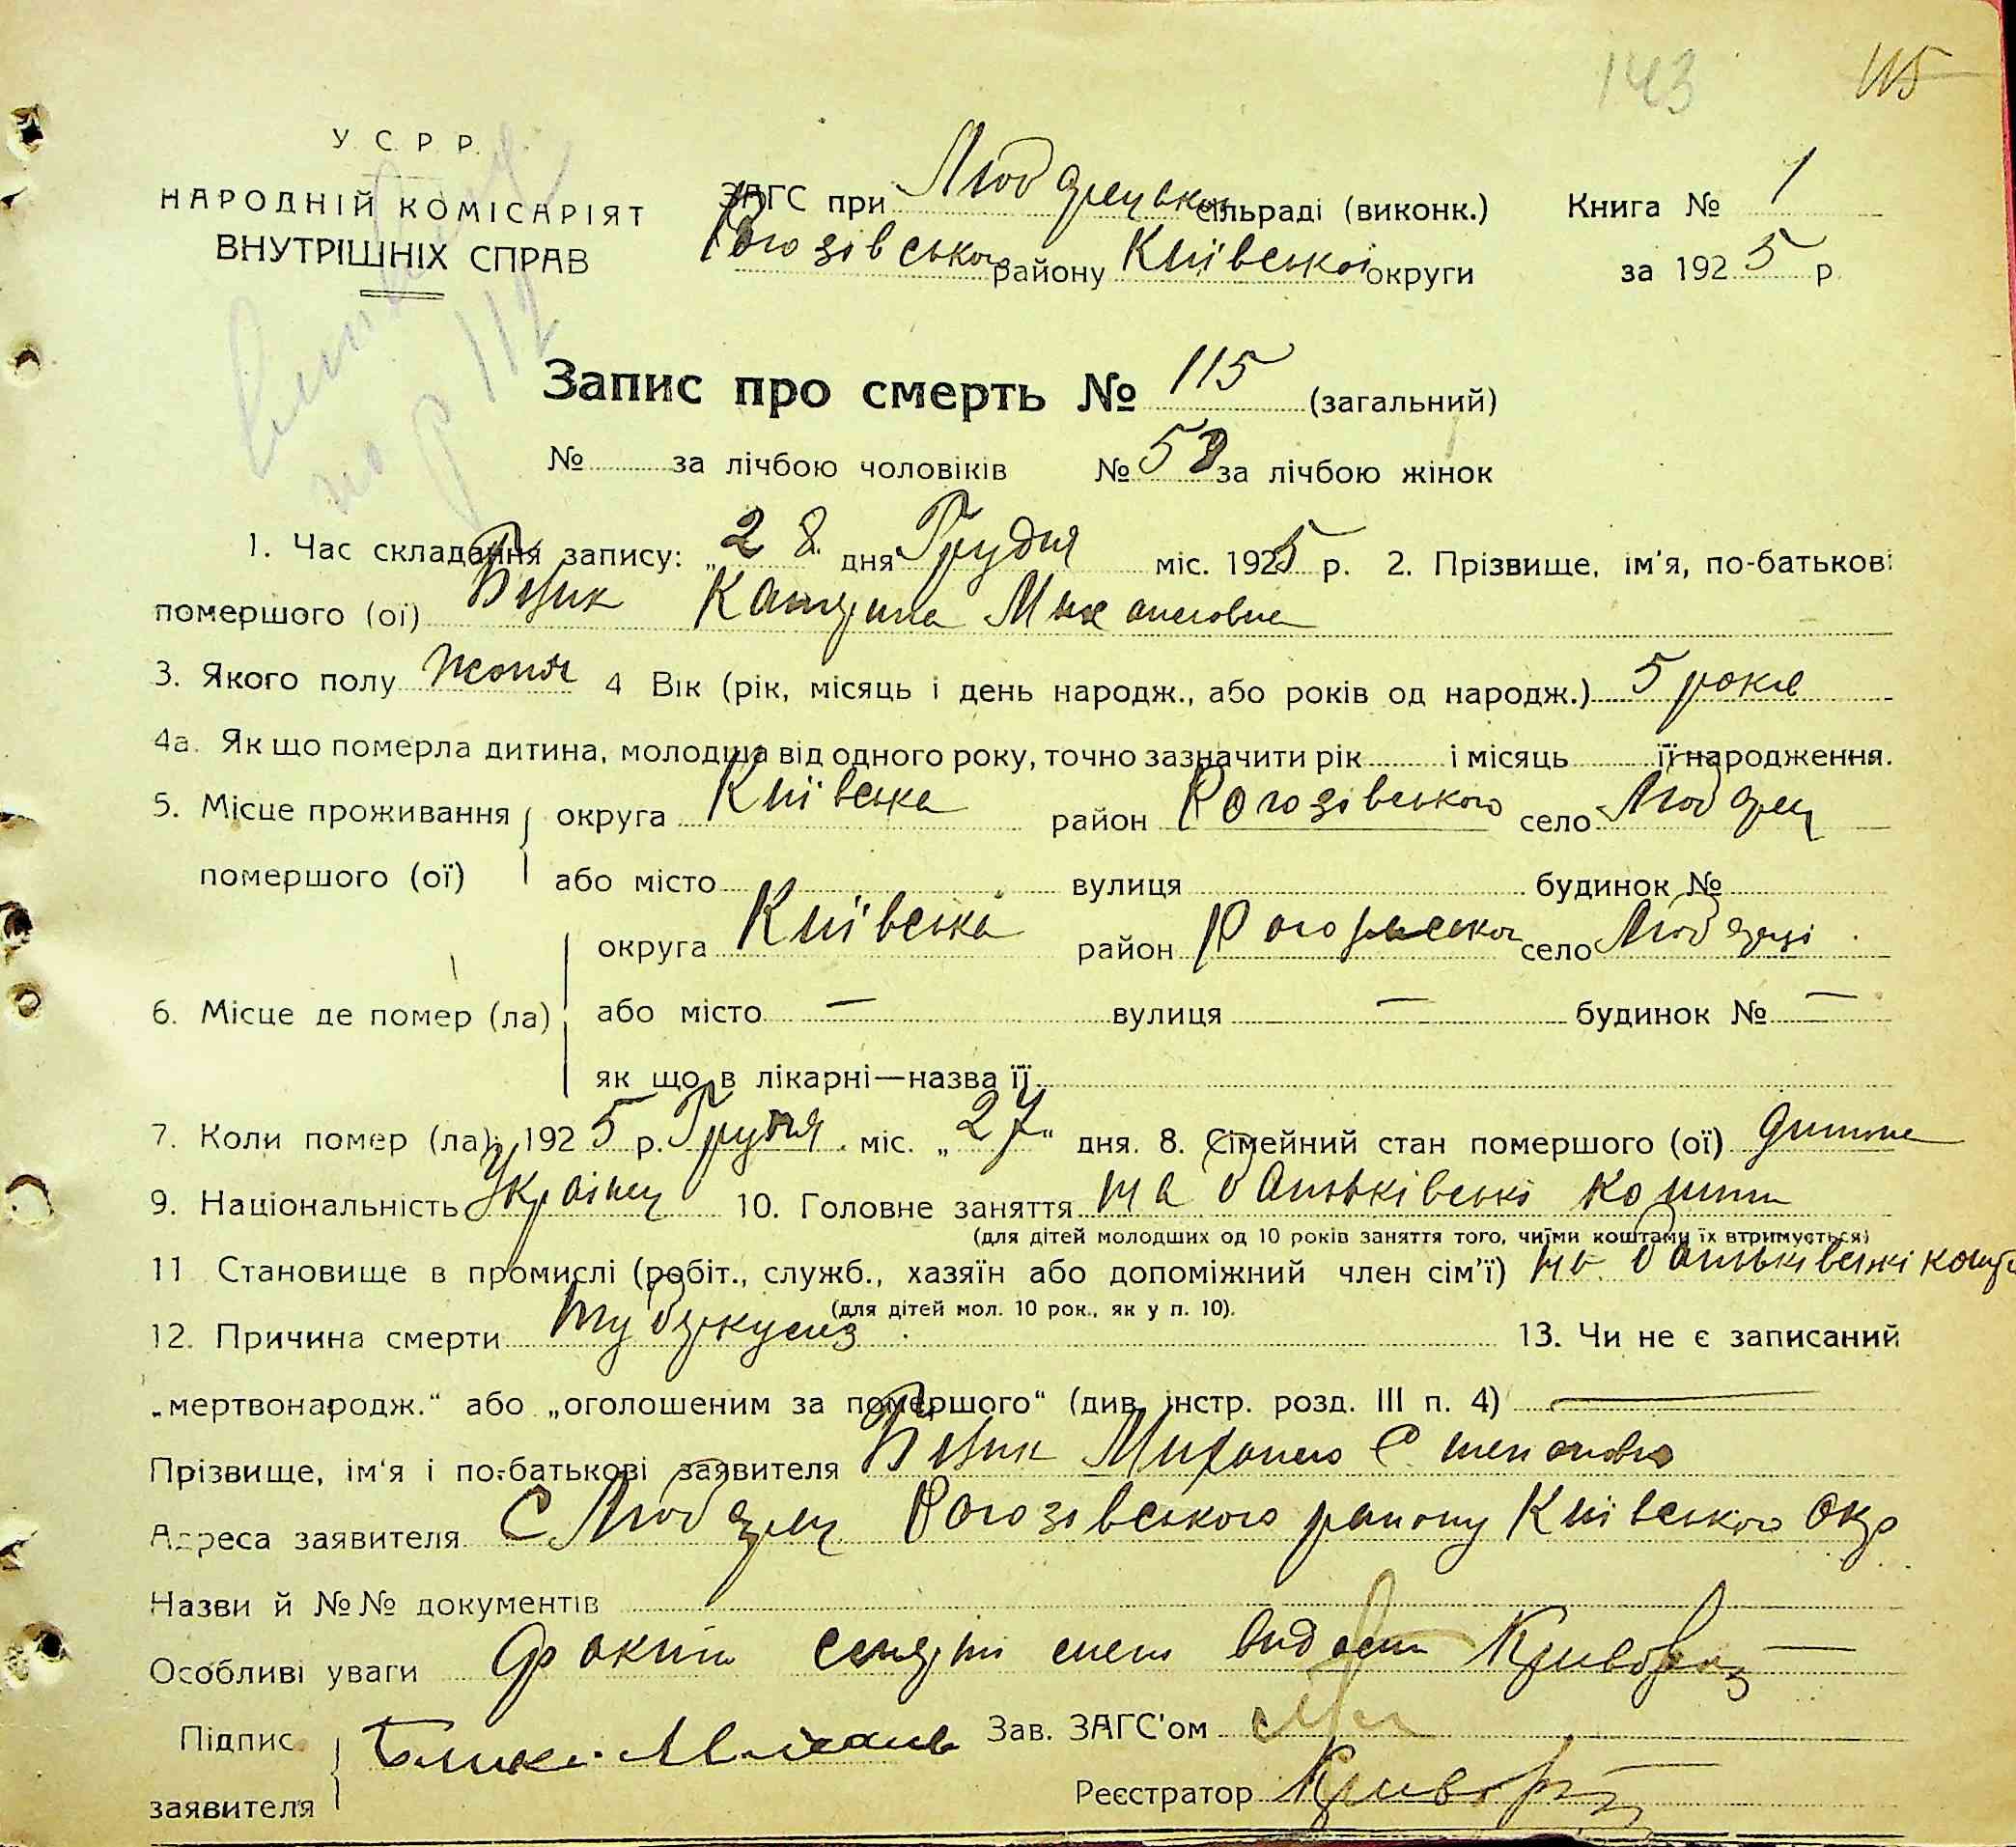 143 115
У. С. Р. Р.
НАРОДНІЙ КОМІСАРІЯТ
ВНУТРІШНІХ СПРАВ
ЗАГС при Любрецькій сільраді (виконк.)
Рогозівського району Київської округи
Книга № 1
за 1925 р.
112
Запис про смерть № 115 (загальний)
№ за лічбою чоловіків № 58 за лічбою жінок
1. Час складання запису: „28 дня Грудня міс. 1925 р. 2. Прізвище, ім'я, по-батькові
помершого (ої) Катерина Михайловна
3. Якого полу жоноч 4 Вік (рік, місяць і день народж., або років од народж.) 5 років
4а. Як що померла дитина, молодша від одного року, точно зазначити рік і місяць її народження.
5. Місце проживання округа Київська район Рогозівського село Любрец
помершого (ої) або місто вулиця будинок №
округа Київська район село Любреці
6. Місце де помер (ла) або місто — вулиця — будинок № —
як що в лікарні—назва її
7. Коли помер (ла) 1925 р. Грудня міс. „27“ дня. 8. Сімейний стан помершого (ої) дитина
9. Національність Українец 10. Головне заняття на батьківські кошти
(для дітей молодших од 10 років заняття того, чиїми коштами їх втримується)
11 Становище в промислі (робіт., служб., хазяїн або допоміжний член сім'ї) на батьківські кошти
(для дітей мол. 10 рок., як у п. 10).
12. Причина смерти туберкулиз 13. Чи не є записаний
„мертвонародж.“ або „оголошеним за помершого“ (див. інстр. розд. III п. 4) —
Прізвище, ім'я і по-батькові заявителя Михайло Степанович
Адреса заявителя С Любрец Рогозівського району Київського окр
Назви й №№ документів
Особливі уваги Факт смерти
Підпис
заявителя
Зав. ЗАГС'ом
Реєстратор